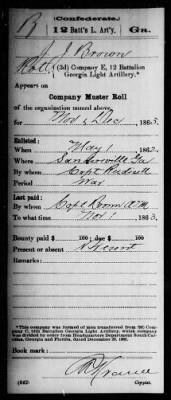 (Confederate.)
B 12 Batt'l L. Art'y. Ga.
J. J. Brown
(3d) Company E, 12 Battalion
Georgia Light Artillery.*
Appears on
Company Muster Roll
of the organization named above,
for Nov & Dec, 1863.
Enlisted:
When May 1, 1862.
Where Sandersville Ga
By whom Capt Rudisill
Period War
Last paid:
By whom Capt
To what time Nov 1, 1863.
Bounty paid $ 100; due $ 100
Present or absent
Remarks:
*This company was formed of men transferred from
Georgia Light Artillery, which company
was divided by order from Headquarters Department South Caro-
lina, Georgia and Florida, dated December 1862.
Book mark:
(642) Copyist.